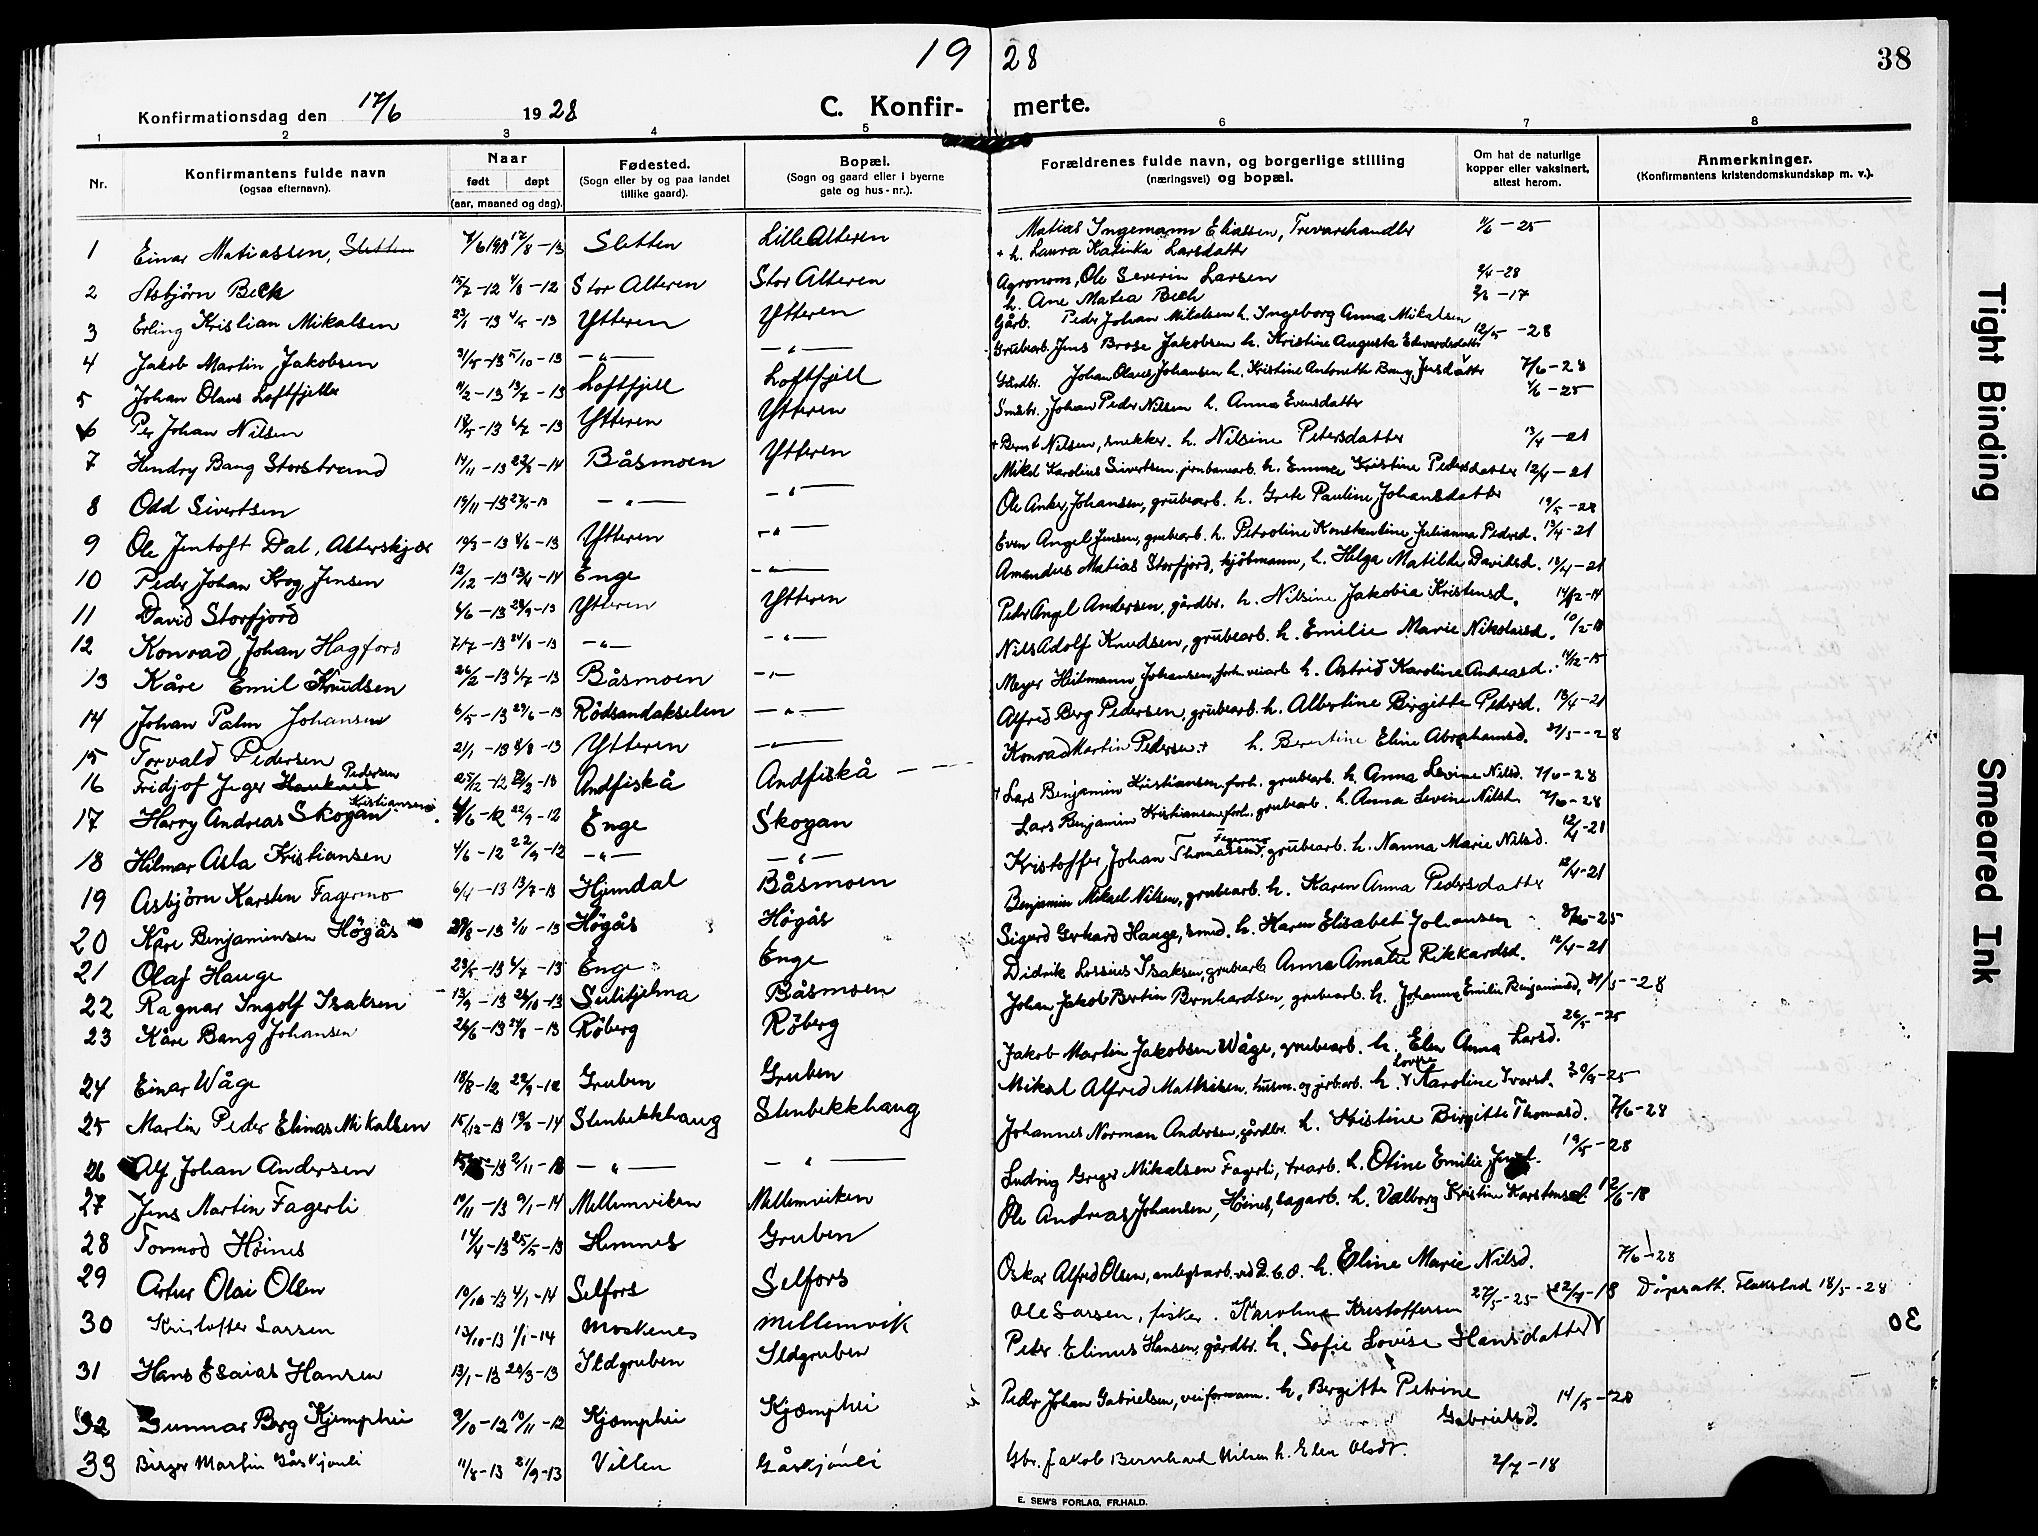 19 28
38
Konfirmationsdag den 17/6 1928
C. Konfir- merte.
1 2 3 4 5 6 7 8
Nr.
Konfirmantens fulde navn
(ogsaa efternavn).
Naar
født døpt
(aar, maaned og dag).
Fødested.
(Sogn eller by og paa landet
tillike gaard).
Bopæl.
(Sogn og gaard eller i byerne
gate og hus-nr.).
Forældrenes fulde navn, og borgerlige stilling
(næringsvei) og bopæl.
Om hat de naturlige
kopper eller vaksinert,
attest herom.
Anmerkninger.
(Konfirmantens kristendomskundskap m. v.).
1 Einar Matiassen, Sletten Sletten Lille Alteren Matias Ingemann Eliassen, Trevarehandler 11/6-25
+ h. Laura Katinka Larsdatter
2 Asbjörn Beck 15/7-12 4/8-12 Stor Alteren Stor Alteren Agronom, Ole Severin Larsen 2/4-28
h. Ane Matea Bech
3 Erling Kristian Mikalsen 23/1-13 4/5-13 Ytteren Ytteren Gårb. Peder Johan Mikalsen h. Ingeborg Anna Mikalsen
4 Jakob Martin Jakobsen 31/5-13 5/10-13 -"- -"- Grubearb. Jens Brose Jakobsen h. Kristine Augusta Edvardsdatter 12/5-28
5 Johan Olaus Loftfjell 11/2-13 13/7-13 Loftfjell Loftfjell Gårdbr. Johan Olaus Johansen h. Kristine Antonette Bang Jensdatter 7/6-28
6 Per Johan Nilsen 18/5-13 6/7-13 Ytteren Ytteren Småbr. Johan Peder Nilsen h. Anna Evensdatter 4/6-25
7 Hendry Bang Storstrand 14/11-13 Båsmoen Ytteren + Bernt Nilsen, snekker. h. Nilsine Petersdatter 13/4-21
8 Odd Sivertsen 19/11-13 -"- -"- Mikal Karolius Sivertsen jernbanearb. h. Emma Kristine Pedersdatter 12/4-21
9 Ole Jentoft Dal, Alterskjær 19/3-13 8/6-13 Ytteren -"- Ole Anker Johansen, grubearb. h. Grete Pauline Johansdatter 19/5-28
10 Peder Johan Krog Jensen 12/12-13 13/4-14 Enge -"- Even Angel Jensen, grubearb. h. Petroline Konstantine Julianna Pedersd. 13/4-21
11 David Storfjord 4/6-13 28/9-13 Ytteren Ytteren Amandus Matias Storfjord, kjöbmann, h. Helga Matilde Davidsd. 13/4-21
12 Konrad Johan Hagfors 7/7-13 24/8-13 -"- -"- Peder Angel Andersen, gårdbr. h. Nilsine Jakobia Kristensd.
13 Kåre Emil Knudsen 26/2-13 6/7-13 Båsmoen -"- Nils Adolf Knudsen, grubearb. h. Emilie Marie Nikolaisd. 10/2-18
14 Johan Palm Johansen 6/5-13 29/6-13 Rödsandakselen -"- Meyer Heitmann Johansen, forh. veiarb h. Astrid Karoline Andreasd. 11/12-15
15 Torvald Pedersen 21/1-13 8/8-13 Ytteren -"- Alfred Berg Pedersen, grubearb. h. Albertine Birgitte Pedersd. 13/4-21
16 Fridjof Jeger Hauknes Pedersen 25/2-12 Andfiskå Andfiskå Konrad Martin Pedersen + h. Berntine Eline Abrahamsd. 21/5-28
17 Harry Andreas Skogan Kristiansen 4/6-12 22/9-12 Enge Skogan + Lars Benjamin Kristiansen, forh. grubearb. h. Anna Levine Nilsd. 7/6-28
18 Hilmar Asla Kristiansen 4/6-12 22/9-12 -"- -"- Lars Benjamin Kristiansen, forh. grubearb. h. Anna Levine Nilsd. 7/6-28
19 Asbjörn Karsten Fagermo 6/4-13 13/7-13 Hjemdal Båsmoen Kristoffer Johan Thomassen Fagermo, grubearb. h. Nanna Marie Nilsd. 12/4-21
20 Kåre Benjaminsen Högås 29/8-13 2/11-13 Högås Högås Benjamin Mikael Nilsen, grubearb. h. Karen Anna Pedersdatter 12/4-21
21 Olaf Hauge 23/5-13 6/7-13 Enge Enge Sigurd Gerhard Hauge, smed. h. Karen Elisabet Johansen
22 Ragnar Ingolf Isaksen 13/9-13 26/10-13 Sulitjelma Båsmoen Didrik Lossius Isaksen, grubearb Anna Amalie Rikkardsd. 12/4-21
23 Kåre Bang Johansen 26/6-13 24/8-13 Röberg Röberg Johan Jakob Bertin Bernhardsen, grubearb. h. Johanna Emilie Benjaminsd. 31/5-28
24 Einar Wåge 18/8-12 29/9-12 Gruben Gruben Jakob Martin Jakobsen Wåge, grubearb. h. Elen Anna Larsd. 26/5-25
25 Martin Peder Elinas Mikalsen 15/12-13 13/4-14 Stenbekkhaug Stenbekkhaug Mikal Alfred Mathisen, husm. og jernb.arb. h. Lovise Karoline Ivarsd. 30/9-25
26 Alf Johan Andersen 2/11-13 -"- -"- Johannes Norman Andersen, gårdbr. h. Kristine Birgitte Thomasd. 7/6-28
27 Jens Martin Fagerli 10/11-13 9/1-14 Mellemviken Mellemviken Ludvig Greger Mikalsen Fagerli, trearb. h. Oline Emilie 19/5-28
28 Tormod Höines 14/4-13 25/5-13 Hemnes Gruben Ole Andreas Johansen, Höines, sagarb. h. Valborg Kristine Karstensd. 12/6-18
29 Artur Olai Olsen 19/10-13 4/1-14 Selfors Selfors Oskar Alfred Olsen, anlegsarb. ved D.C.O. h. Eline Marie Nilsd. 7/6-28
30 Kristoffer Larsen 13/10-13 1/1-14 Moskenes Mellemvik Ole Larsen, fisker. Karoline Kristoffersen 27/5-25 22/7-18 Dåpsatt. Flakstad 18/5-28
30
31 Hans Esaias Hansen 13/1-13 23/3-13 Ildgruben Ildgruben Peder Elinus Hansen, gårdbr. h. Sofie Lovise Hansdatter
32 Gunnar Berg Kjemphei 9/10-12 10/11-12 Kjæmphei Kjæmphei Peder Johan Gabrielsen, veiformann. h. Bergitte Petrine 14/5-28
Gabrielsd.
33 Birger Martin Gåskjönli 11/8-13 21/9-13 Villen Gåskjönli Gbr. Jakob Bernhard Nilsen h. Elen Olsdt. 2/7-18
E. SEM'S FORLAG, FR.HALD.
Tight Binding
Smeared Ink